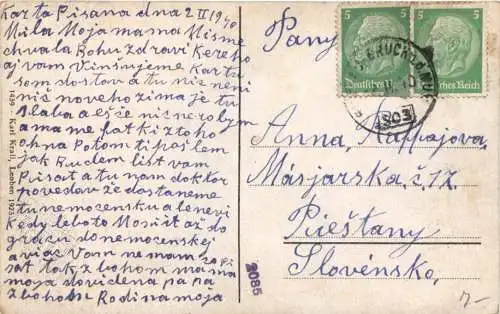 Karta Pisana dna 2 II 1940
Mila Moja mama Mi sme
chvala Bohu zdravi Kereho
aj vam Vinšujeme Kartu
som dostav a tu nis neni
niš noveho zima je tu
slaba a ešče nis nerobym
a mame fatki z toho
ohna Potom ti pošlem
jak Budem list vam
Pisat a tu nam doktor
povedav že dostaneme
tu nemocensku a lenevi
Kedy lebo to Mosit až do
gracu do nemocenskej
a viac Vam ne mam co pi
sat tak z bohom mama
moja dovidena pa pa
z bohom Rodina moja
1459 - Karl Krall, Leoben 1925
Pany
5
5
Deutsches Reich
Deutsches Reich
Anna, Kappajova
Másjarska č. 17
Pieštany
Slovénsko,
2085
7-